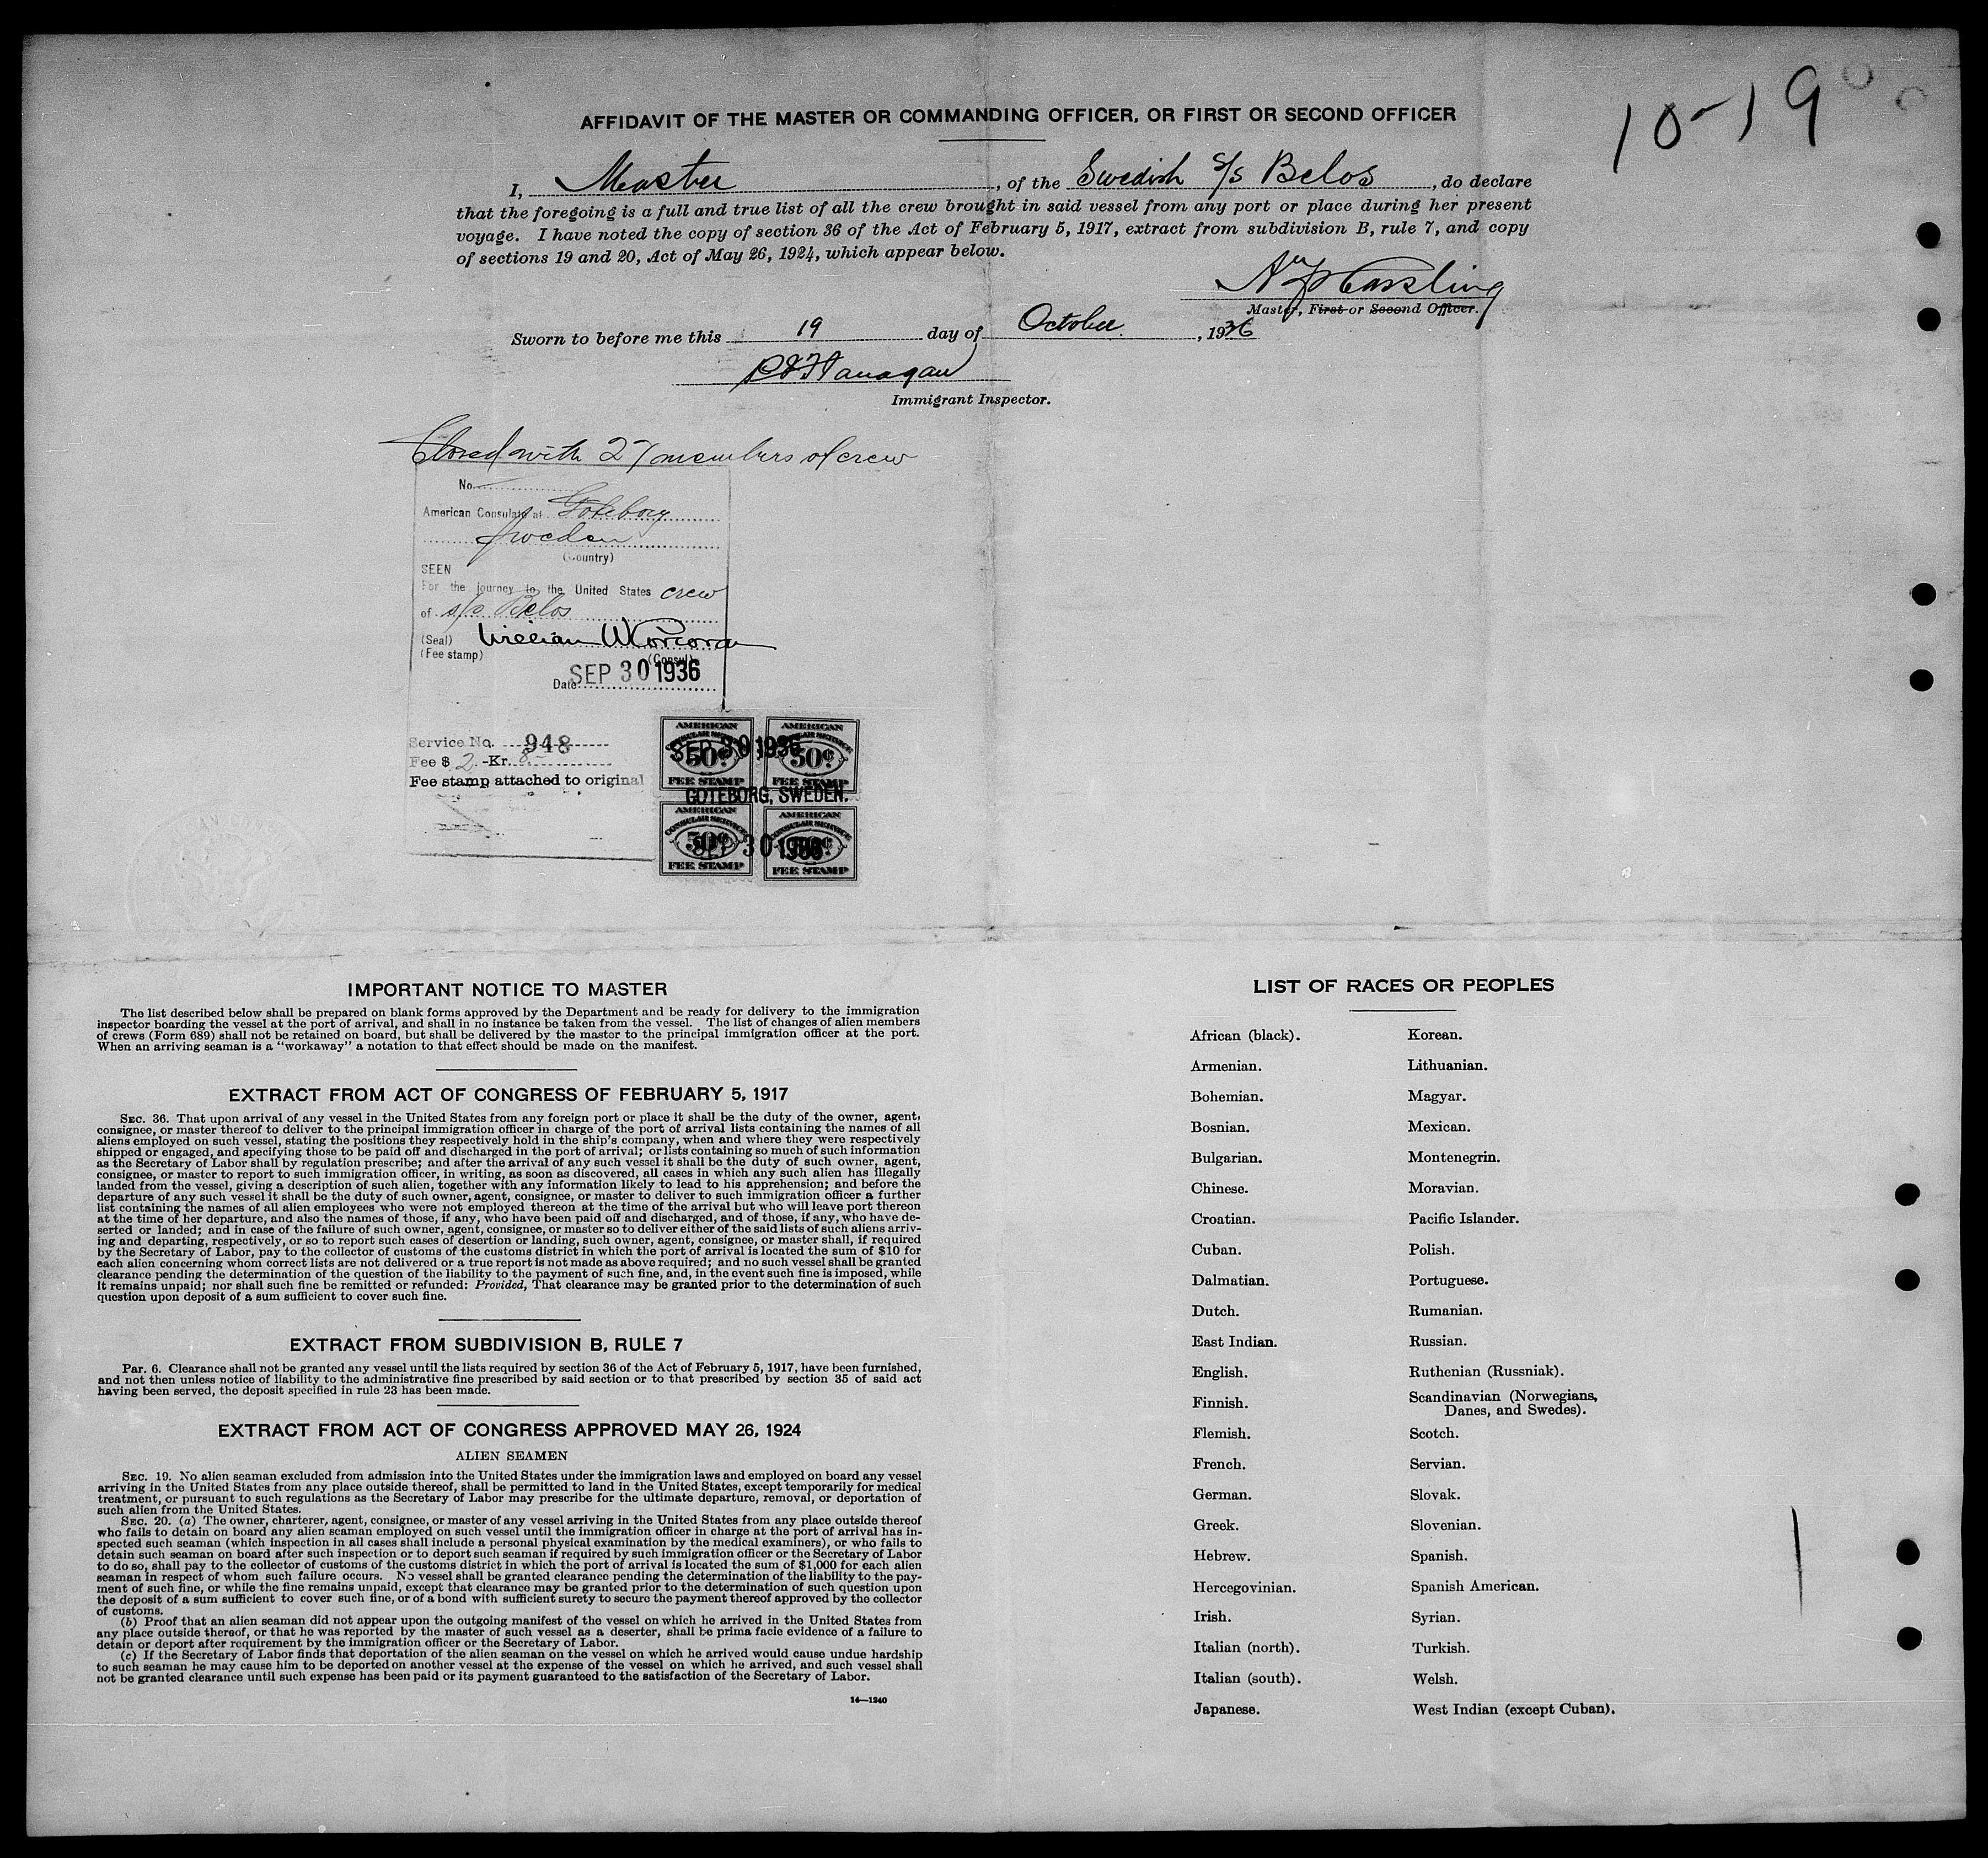 10-19
AFFIDAVIT OF THE MASTER OR COMMANDING OFFICER, OR FIRST OR SECOND OFFICER
I, Master, of the Swedish s/s Belos, do declare
that the foregoing is a full and true list of all the crew brought in said vessel from any port or place during her present
voyage. I have noted the copy of section 36 of the Act of February 5, 1917, extract from subdivision B, rule 7, and copy
of sections 19 and 20, Act of May 26, 1924, which appear below.
Master, First or Second Officer.
Sworn to before me this 19 day of October, 1936
Immigrant Inspector.
Closed with 27 members of crew
No.
American Consulate at Goteborg
Sweden
(Country)
SEEN
For the journey to the United States crew
of s/s Belos
(Seal) William W Corcoran
(Fee stamp) (Consul)
Date SEP 30 1936
Service No. 948
Fee $ 2.-Kr. 8.-
Fee stamp attached to original
AMERICAN CONSULAR SERVICE 50¢ FEE STAMP
AMERICAN CONSULAR SERVICE 50¢ FEE STAMP
SEP 30 1936
GOTEBORG, SWEDEN.
AMERICAN CONSULAR SERVICE 50¢ FEE STAMP
AMERICAN CONSULAR SERVICE 50¢ FEE STAMP
SEP 30 1936
IMPORTANT NOTICE TO MASTER
The list described below shall be prepared on blank forms approved by the Department and be ready for delivery to the immigration
inspector boarding the vessel at the port of arrival, and shall in no instance be taken from the vessel. The list of changes of alien members
of crews (Form 689) shall not be retained on board, but shall be delivered by the master to the principal immigration officer at the port.
When an arriving seaman is a "workaway" a notation to that effect should be made on the manifest.
EXTRACT FROM ACT OF CONGRESS OF FEBRUARY 5, 1917
SEC. 36. That upon arrival of any vessel in the United States from any foreign port or place it shall be the duty of the owner, agent,
consignee, or master thereof to deliver to the principal immigration officer in charge of the port of arrival lists containing the names of all
aliens employed on such vessel, stating the positions they respectively hold in the ship's company, when and where they were respectively
shipped or engaged, and specifying those to be paid off and discharged in the port of arrival; or lists containing so much of such information
as the Secretary of Labor shall by regulation prescribe; and after the arrival of any such vessel it shall be the duty of such owner, agent,
consignee, or master to report to such immigration officer, in writing, as soon as discovered, all cases in which any such alien has illegally
landed from the vessel, giving a description of such alien, together with any information likely to lead to his apprehension; and before the
departure of any such vessel it shall be the duty of such owner, agent, consignee, or master to deliver to such immigration officer a further
list containing the names of all alien employees who were not employed thereon at the time of the arrival but who will leave port thereon
at the time of her departure, and also the names of those, if any, who have been paid off and discharged, and of those, if any, who have de-
serted or landed; and in case of the failure of such owner, agent, consignee, or master so to deliver either of the said lists of such aliens arriv-
ing and departing, respectively, or so to report such cases of desertion or landing, such owner, agent, consignee, or master shall, if required
by the Secretary of Labor, pay to the collector of customs of the customs district in which the port of arrival is located the sum of $10 for
each alien concerning whom correct lists are not delivered or a true report is not made as above required; and no such vessel shall be granted
clearance pending the determination of the question of the liability to the payment of such fine, and, in the event such fine is imposed, while
it remains unpaid; nor shall such fine be remitted or refunded: Provided, That clearance may be granted prior to the determination of such
question upon deposit of a sum sufficient to cover such fine.
EXTRACT FROM SUBDIVISION B, RULE 7
Par. 6. Clearance shall not be granted any vessel until the lists required by section 36 of the Act of February 5, 1917, have been furnished,
and not then unless notice of liability to the administrative fine prescribed by said section or to that prescribed by section 35 of said act
having been served, the deposit specified in rule 23 has been made.
EXTRACT FROM ACT OF CONGRESS APPROVED MAY 26, 1924
ALIEN SEAMEN
SEC. 19. No alien seaman excluded from admission into the United States under the immigration laws and employed on board any vessel
arriving in the United States from any place outside thereof, shall be permitted to land in the United States, except temporarily for medical
treatment, or pursuant to such regulations as the Secretary of Labor may prescribe for the ultimate departure, removal, or deportation of
such alien from the United States.
SEC. 20. (a) The owner, charterer, agent, consignee, or master of any vessel arriving in the United States from any place outside thereof
who fails to detain on board any alien seaman employed on such vessel until the immigration officer in charge at the port of arrival has in-
spected such seaman (which inspection in all cases shall include a personal physical examination by the medical examiners), or who fails to
detain such seaman on board after such inspection or to deport such seaman if required by such immigration officer or the Secretary of Labor
to do so, shall pay to the collector of customs of the customs district in which the port of arrival is located the sum of $1,000 for each alien
seaman in respect of whom such failure occurs. No vessel shall be granted clearance pending the determination of the liability to the pay-
ment of such fine, or while the fine remains unpaid, except that clearance may be granted prior to the determination of such question upon
the deposit of a sum sufficient to cover such fine, or of a bond with sufficient surety to secure the payment thereof approved by the collector
of customs.
(b) Proof that an alien seaman did not appear upon the outgoing manifest of the vessel on which he arrived in the United States from
any place outside thereof, or that he was reported by the master of such vessel as a deserter, shall be prima facie evidence of a failure to
detain or deport after requirement by the immigration officer or the Secretary of Labor.
(c) If the Secretary of Labor finds that deportation of the alien seaman on the vessel on which he arrived would cause undue hardship
to such seaman he may cause him to be deported on another vessel at the expense of the vessel on which he arrived, and such vessel shall
not be granted clearance until such expense has been paid or its payment guaranteed to the satisfaction of the Secretary of Labor.
14—1240
LIST OF RACES OR PEOPLES
African (black).
Armenian.
Bohemian.
Bosnian.
Bulgarian.
Chinese.
Croatian.
Cuban.
Dalmatian.
Dutch.
East Indian.
English.
Finnish.
Flemish.
French.
German.
Greek.
Hebrew.
Hercegovinian.
Irish.
Italian (north).
Italian (south).
Japanese.
Korean.
Lithuanian.
Magyar.
Mexican.
Montenegrin.
Moravian.
Pacific Islander.
Polish.
Portuguese.
Rumanian.
Russian.
Ruthenian (Russniak).
Scandinavian (Norwegians,
Danes, and Swedes).
Scotch.
Servian.
Slovak.
Slovenian.
Spanish.
Spanish American.
Syrian.
Turkish.
Welsh.
West Indian (except Cuban).